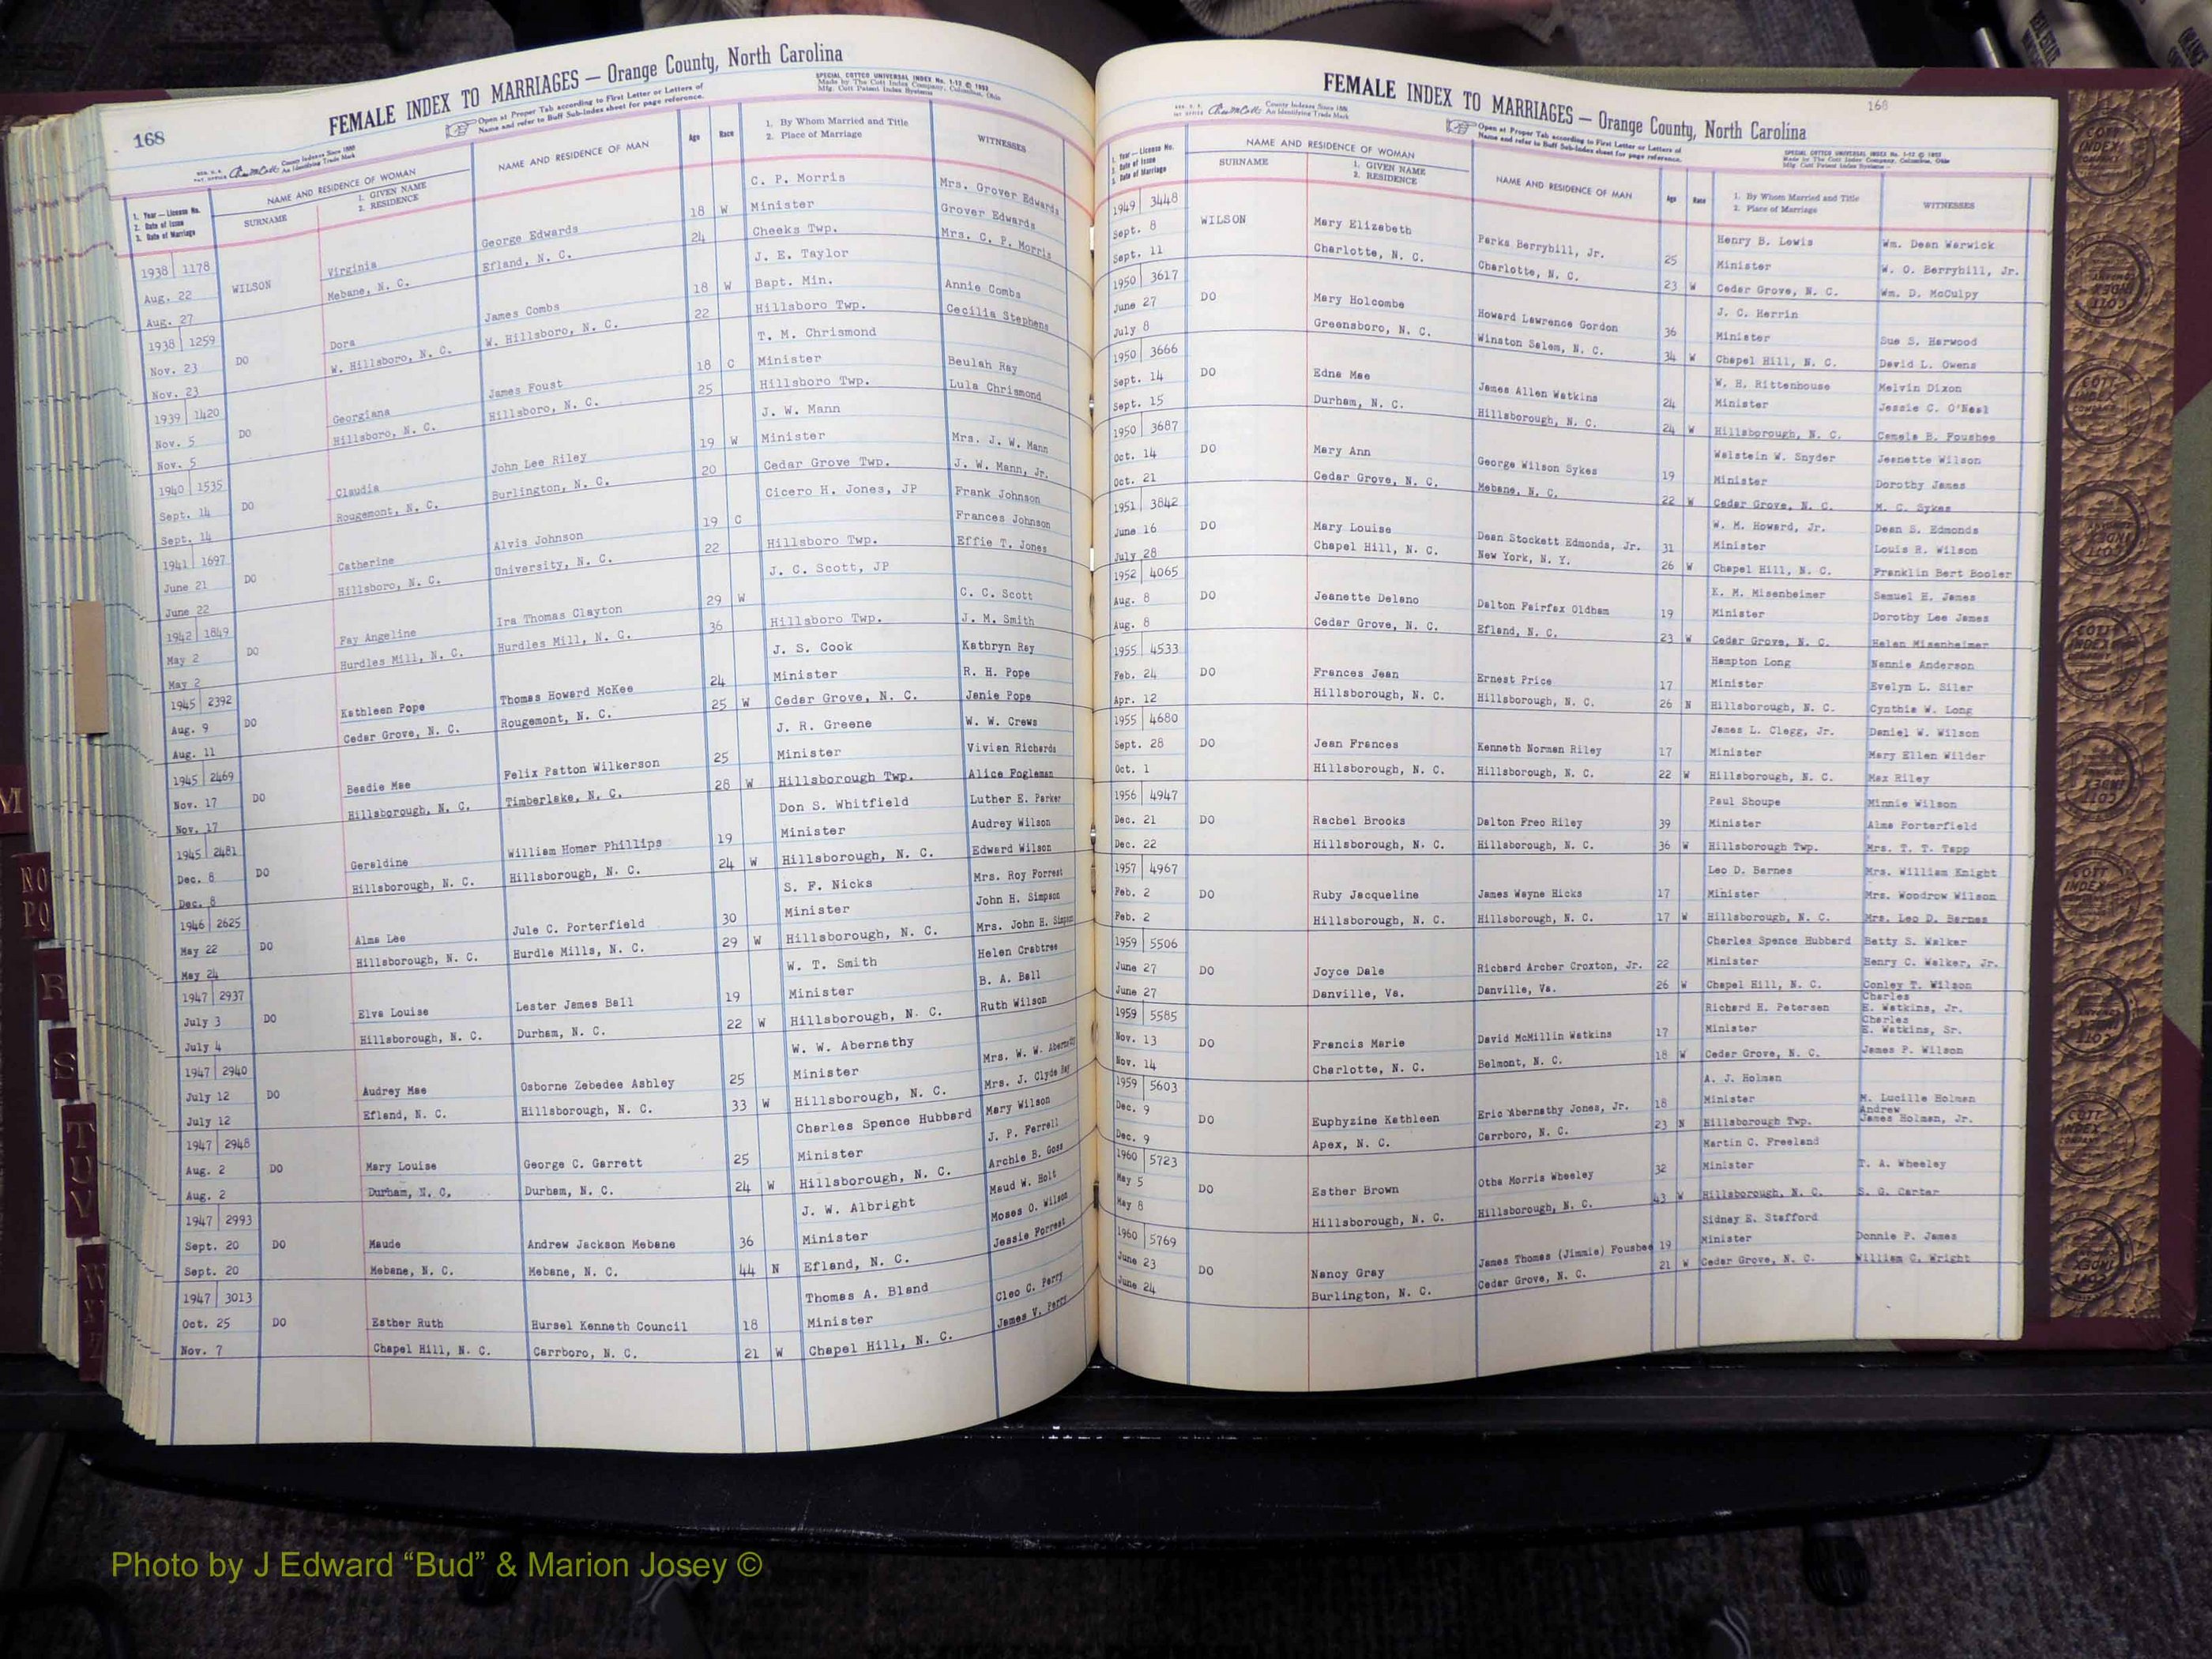 168
FEMALE INDEX TO MARRIAGES — Orange County, North Carolina
Open at Proper Tab according to First Letter or Letters of
Name and refer to Buff Sub-Index sheet for page reference.
SPECIAL COTTCO UNIVERSAL INDEX No. 1-12 © 1952
Made by The Cott Index Company, Columbus, Ohio
Mfg. Cott Patent Index Systems
County Indexes Since 1888
An Identifying Trade Mark
1. Year — License No.
2. Date of Issue
3. Date of Marriage
NAME AND RESIDENCE OF WOMAN
SURNAME
1. GIVEN NAME
2. RESIDENCE
NAME AND RESIDENCE OF MAN
Age
Race
1. By Whom Married and Title
2. Place of Marriage
WITNESSES
1938 1178 C. P. Morris Mrs. Grover Edwards
Aug. 22 WILSON Virginia George Edwards 18 W Minister Grover Edwards
Aug. 27 Mebane, N. C. Efland, N. C. 24 Cheeks Twp. Mrs. C. P. Morris
1938 1259 J. E. Taylor
Nov. 23 DO Dora James Combs 18 W Bapt. Min. Annie Combs
Nov. 23 W. Hillsboro, N. C. W. Hillsboro, N. C. 22 Hillsboro Twp. Cecilia Stephens
1939 1420 T. M. Chrismond
Nov. 5 DO Georgiana James Foust 18 C Minister Beulah Ray
Nov. 5 Hillsboro, N. C. Hillsboro, N. C. 25 Hillsboro Twp. Lula Chrismond
1940 1535 J. W. Mann
Sept. 14 DO Claudia John Lee Riley 19 W Minister Mrs. J. W. Mann
Sept. 14 Rougemont, N. C. Burlington, N. C. 20 Cedar Grove Twp. J. W. Mann, Jr.
1941 1697 Cicero H. Jones, JP Frank Johnson
June 21 DO Catherine Alvis Johnson 19 C Frances Johnson
June 22 Hillsboro, N. C. University, N. C. 22 Hillsboro Twp. Effie T. Jones
1942 1849 J. C. Scott, JP
May 2 DO Fay Angeline Ira Thomas Clayton 29 W C. C. Scott
May 2 Hurdles Mill, N. C. Hurdles Mill, N. C. 36 Hillsboro Twp. J. M. Smith
1945 2392 J. S. Cook Kathryn Ray
Aug. 9 DO Kathleen Pope Thomas Howard McKee 24 Minister R. H. Pope
Aug. 11 Cedar Grove, N. C. Rougemont, N. C. 25 W Cedar Grove, N. C. Janie Pope
1945 2469 J. R. Greene W. W. Crews
Nov. 17 DO Beadie Mae Felix Patton Wilkerson 25 Minister Vivian Richards
Nov. 17 Hillsborough, N. C. Timberlake, N. C. 28 W Hillsborough Twp. Alice Fogleman
1945 2481 Don S. Whitfield Luther E. Parker
Dec. 8 DO Geraldine William Homer Phillips 19 Minister Audrey Wilson
Dec. 8 Hillsborough, N. C. Hillsborough, N. C. 24 W Hillsborough, N. C. Edward Wilson
1946 2625 S. F. Nicks Mrs. Roy Forrest
May 22 DO Alma Lee Jule C. Porterfield 30 Minister John H. Simpson
May 24 Hillsborough, N. C. Hurdle Mills, N. C. 29 W Hillsborough, N. C. Mrs. John H. Simpson
1947 2937 W. T. Smith Helen Crabtree
July 3 DO Elva Louise Lester James Ball 19 Minister B. A. Ball
July 4 Hillsborough, N. C. Durham, N. C. 22 W Hillsborough, N. C. Ruth Wilson
1947 2940 W. W. Abernathy
July 12 DO Audrey Mae Osborne Zebedee Ashley 25 Minister Mrs. W. W. Abernathy
July 12 Efland, N. C. Hillsborough, N. C. 33 W Hillsborough, N. C. Mrs. J. Clyde Ray
1947 2948 Charles Spence Hubbard Mary Wilson
Aug. 2 DO Mary Louise George C. Garrett 25 Minister J. P. Ferrell
Aug. 2 Durham, N. C. Durham, N. C. 24 W Hillsborough, N. C. Archie B. Goss
1947 2993 J. W. Albright Maud W. Holt
Sept. 20 DO Maude Andrew Jackson Mebane 36 Minister Moses O. Wilson
Sept. 20 Mebane, N. C. Mebane, N. C. 44 N Efland, N. C. Jessie Forrest
1947 3013 Thomas A. Bland
Oct. 25 DO Esther Ruth Hursel Kenneth Council 18 Minister Cleo C. Perry
Nov. 7 Chapel Hill, N. C. Carrboro, N. C. 21 W Chapel Hill, N. C. James V. Perry
168
FEMALE INDEX TO MARRIAGES — Orange County, North Carolina
County Indexes Since 1888
An Identifying Trade Mark
Open at Proper Tab according to First Letter or Letters of
Name and refer to Buff Sub-Index sheet for page reference.
SPECIAL COTTCO UNIVERSAL INDEX No. 1-12 © 1952
Made by The Cott Index Company, Columbus, Ohio
Mfg. Cott Patent Index Systems
1. Year — License No.
2. Date of Issue
3. Date of Marriage
NAME AND RESIDENCE OF WOMAN
SURNAME
1. GIVEN NAME
2. RESIDENCE
NAME AND RESIDENCE OF MAN
Age
Race
1. By Whom Married and Title
2. Place of Marriage
WITNESSES
1949 3448 Henry B. Lewis Wm. Dean Warwick
Sept. 8 WILSON Mary Elizabeth Parks Berrybill, Jr. 25 Minister W. O. Berrybill, Jr.
Sept. 11 Charlotte, N. C. Charlotte, N. C. 23 W Cedar Grove, N. C. Wm. D. McCulpy
1950 3617 J. C. Herrin
June 27 DO Mary Holcombe Howard Lawrence Gordon 36 Minister Sue S. Harwood
July 8 Greensboro, N. C. Winston Salem, N. C. 34 W Chapel Hill, N. C. David L. Owens
1950 3666 W. H. Rittenhouse Melvin Dixon
Sept. 14 DO Edna Mae James Allen Watkins 24 Minister Jessie C. O'Neal
Sept. 15 Durham, N. C. Hillsborough, N. C. 24 W Hillsborough, N. C. Camela B. Foushee
1950 3687 Walstein W. Snyder Jeanette Wilson
Oct. 14 DO Mary Ann George Wilson Sykes 19 Minister Dorothy James
Oct. 21 Cedar Grove, N. C. Mebane, N. C. 22 W Cedar Grove, N. C. M. C. Sykes
1951 3842 W. M. Howard, Jr. Dean S. Edmonds
June 16 DO Mary Louise Dean Stockett Edmonds, Jr. 31 Minister Louis R. Wilson
July 28 Chapel Hill, N. C. New York, N. Y. 26 W Chapel Hill, N. C. Franklin Bert Booler
1952 4065 E. M. Misenheimer Samuel H. James
Aug. 8 DO Jeanette Delano Dalton Fairfax Oldham 19 Minister Dorothy Lee James
Aug. 8 Cedar Grove, N. C. Efland, N. C. 23 W Cedar Grove, N. C. Helen Misenheimer
1955 4533 Hampton Long Nannie Anderson
Feb. 24 DO Frances Jean Ernest Price 17 Minister Evelyn L. Siler
Apr. 12 Hillsborough, N. C. Hillsborough, N. C. 26 N Hillsborough, N. C. Cynthia W. Long
1955 4680 James L. Clegg, Jr. Daniel W. Wilson
Sept. 28 DO Jean Frances Kenneth Norman Riley 17 Minister Mary Ellen Wilder
Oct. 1 Hillsborough, N. C. Hillsborough, N. C. 22 W Hillsborough, N. C. Max Riley
1956 4947 Paul Shoupe Minnie Wilson
Dec. 21 DO Rachel Brooks Dalton Freo Riley 39 Minister Alma Porterfield
Dec. 22 Hillsborough, N. C. Hillsborough, N. C. 36 W Hillsborough Twp. Mrs. T. T. Tapp
1957 4967 Leo D. Barnes Mrs. William Knight
Feb. 2 DO Ruby Jacqueline James Wayne Hicks 17 Minister Mrs. Woodrow Wilson
Feb. 2 Hillsborough, N. C. Hillsborough, N. C. 17 W Hillsborough, N. C. Mrs. Leo D. Barnes
1959 5506 Charles Spence Hubbard Betty S. Walker
June 27 DO Joyce Dale Richard Archer Croxton, Jr. 22 Minister Henry C. Walker, Jr.
June 27 Danville, Va. Danville, Va. 26 W Chapel Hill, N. C. Conley T. Wilson
1959 5585 Richard H. Petersen Charles E. Watkins, Jr.
Nov. 13 DO Francis Marie David McMillin Watkins 17 Minister Charles E. Watkins, Sr.
Nov. 14 Charlotte, N. C. Belmont, N. C. 18 W Cedar Grove, N. C. James P. Wilson
1959 5603 A. J. Holman
Dec. 9 DO Euphyzine Kathleen Eric Abernathy Jones, Jr. 18 Minister M. Lucille Holman
Dec. 9 Apex, N. C. Carrboro, N. C. 23 N Hillsborough Twp. Andrew James Holman, Jr.
1960 5723 Martin C. Freeland
May 5 DO Esther Brown Otha Morris Wheeley 32 Minister T. A. Wheeley
May 8 Hillsborough, N. C. Hillsborough, N. C. 43 W Hillsborough, N. C. S. G. Carter
1960 5769 Sidney E. Stafford
June 23 DO Nancy Gray James Thomas (Jimmie) Foushee 19 Minister Donnie P. James
June 24 Burlington, N. C. Cedar Grove, N. C. 21 W Cedar Grove, N. C. William C. Wright
M
NO
PQ
R
S
T
U
V
W
Photo by J Edward “Bud” & Marion Josey ©